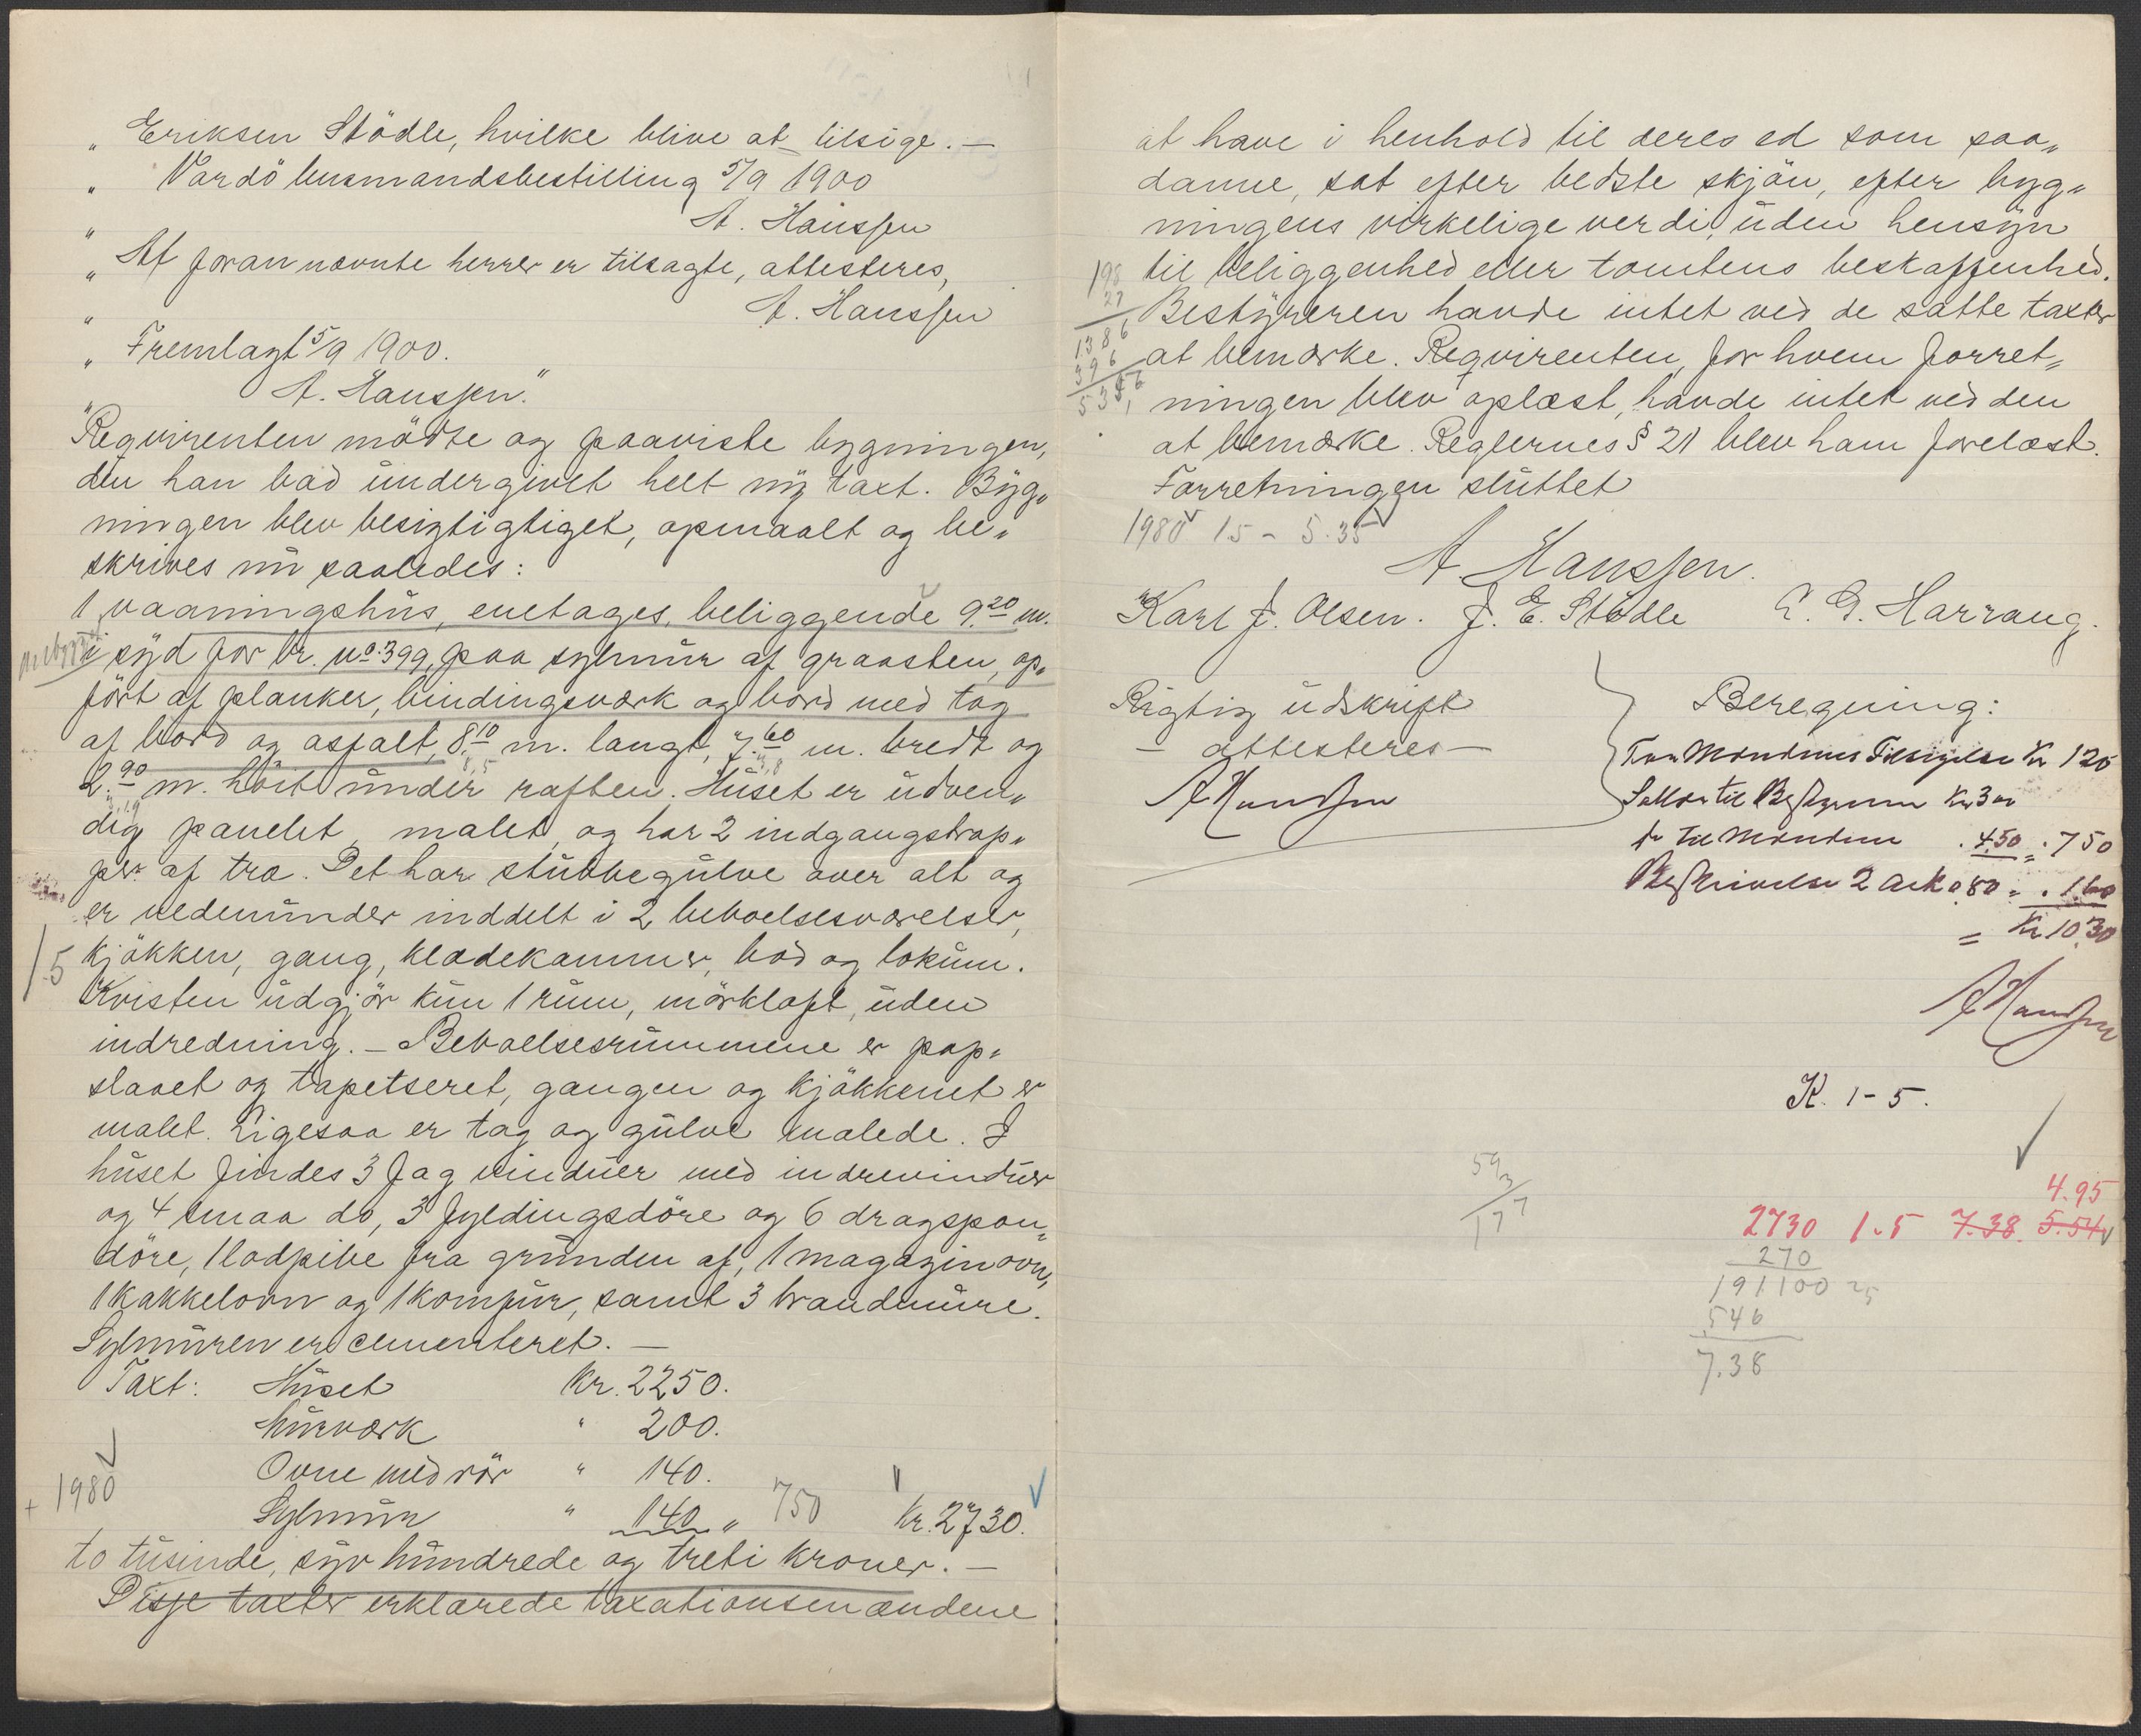 „ Eriksen Stödle, hvilke blive at tilsige. —
„ Vardö lensmandsbestilling 5/9 1900
„ A. Hanssen
„ At foran nævnte herrer er tilsagte, attesteres,
„ A. Hanssen
„ Fremlagt 5/9 1900.
„ A. Hanssen.“
Reqvirenten mödte og paaviste bygningen,
den han bad undergivet helt ny taxt. Byg„
ningen blev besigtigtiget, opmaalt og be„
skrives nu saaledes:
1 vaaningshus, enetages, beliggende 9.20 m.
i syd for br. no. 399, paa sylmur af graasten, op„
fört af planker, bindingsværk og bord med tag
af bord og asfalt, 8.10 m. langt, 7.60 m. bredt og
2.90 m. höit under raften. Huset er udven„
dig panelet, malet, og har 2 indgangstrap„
per af træ. Det har stubbegulve over alt og
er nedenunder inddelt i 2 beboelsesværelser,
15 kjökken, gang, klædekammer, bod og lokum.
Kvisten udgjör kun 1 rum, mörkloft, uden
indredning. — Beboelsesrummene er pap„
slaaet og tapetseret, gangen og kjökkenet er
malet. Ligesaa er tag og gulve malede. I
huset findes 3 fag vinduer med indrevinduer
og 4 smaa do, 3 fyldingsdöre og 6 dragspon„
döre, 1 lodpibe fra grunden af, 1 magazinovn,
1 kakkelovn og 1 komfur, samt 3 brandmure.
Sylmuren er cementeret. —
Taxt: Huset Kr. 2250.
Murværk " 200.
Ovne med rör " 140.
+ 1980
Sylmur " 140 „ 750 Kr. 2730.
to tusinde, syv hundrede og treti kroner. —
Disse taxter erklærede taxationsmændene
at have i henhold til deres ed som saa„
danne, sat efter bedste skjön, efter byg„
ningens virkelige verdi, uden hensyn
til beliggenhed eller tomtens beskaffenhed.
198
27
Bestyreren havde intet ved de satte taxter
1386
at bemærke. Reqvirenten, for hvem forret„
396
ningen blev oplæst, havde intet ved den
at bemærke. Reglernes § 21 blev ham forelæst.
Forretningen sluttet
1980 15 - 5.35
A Hanssen.
Karl J. Olsen. J. E. Stödle L. G. Harraug.
Rigtig udskrift
— attesteres —
A Hanssen
Beregning:
For Mændenes Tilsigelse Kr 120
Sallær til Bestyreren Kr 3 00
do til Mændene . 4.50 = . 7 50
Beskrivelse 2 Ark 0.80 = . 1.60
= Kr 10.30
A Hanssen
K. 1 - 5.
59
3
177
4.95
2730 1.5 7.38 5.54
270
191100 25
546
7.38